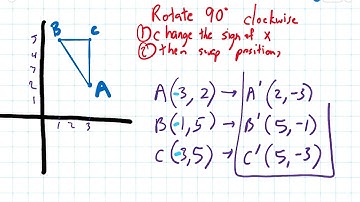 Rotate 90° clockwise
① change the sign of x
② then swap positions
B C
A
5
4
3
2
1
1 2 3
A(-3, 2) → A'(2, -3)
B(-1, 5) → B'(5, -1)
C(-3, 5) → C'(5, -3)